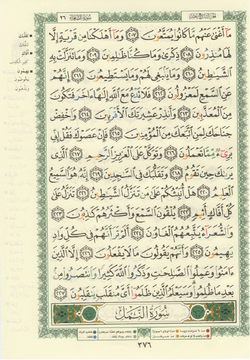 سُورَةُ الشُّعَرَاءِ ٢٦
مَآ أَغْنَىٰ عَنْهُم مَّا كَانُوا۟ يُمَتَّعُونَ ٢٠٧ وَمَآ أَهْلَكْنَا مِن قَرْيَةٍ إِلَّا
لَهَا مُنذِرُونَ ٢٠٨ ذِكْرَىٰ وَمَا كُنَّا ظَـٰلِمِينَ ٢٠٩ وَمَا تَنَزَّلَتْ بِهِ
ٱلشَّيَـٰطِينُ ٢١٠ وَمَا يَنۢبَغِى لَهُمْ وَمَا يَسْتَطِيعُونَ ٢١١ إِنَّهُمْ
عَنِ ٱلسَّمْعِ لَمَعْزُولُونَ ٢١٢ فَلَا تَدْعُ مَعَ ٱللَّهِ إِلَـٰهًا ءَاخَرَ فَتَكُونَ
مِنَ ٱلْمُعَذَّبِينَ ٢١٣ وَأَنذِرْ عَشِيرَتَكَ ٱلْأَقْرَبِينَ ٢١٤ وَٱخْفِضْ
جَنَاحَكَ لِمَنِ ٱتَّبَعَكَ مِنَ ٱلْمُؤْمِنِينَ ٢١٥ فَإِنْ عَصَوْكَ فَقُلْ إِنِّى
بَرِىٓءٌ مِّمَّا تَعْمَلُونَ ٢١٦ وَتَوَكَّلْ عَلَى ٱلْعَزِيزِ ٱلرَّحِيمِ ٢١٧ ٱلَّذِى
يَرَىٰكَ حِينَ تَقُومُ ٢١٨ وَتَقَلُّبَكَ فِى ٱلسَّـٰجِدِينَ ٢١٩ إِنَّهُۥ هُوَ ٱلسَّمِيعُ
ٱلْعَلِيمُ ٢٢٠ هَلْ أُنَبِّئُكُمْ عَلَىٰ مَن تَنَزَّلُ ٱلشَّيَـٰطِينُ ٢٢١ تَنَزَّلُ عَلَىٰ
كُلِّ أَفَّاكٍ أَثِيمٍ ٢٢٢ يُلْقُونَ ٱلسَّمْعَ وَأَكْثَرُهُمْ كَـٰذِبُونَ ٢٢٣
وَٱلشُّعَرَآءُ يَتَّبِعُهُمُ ٱلْغَاوُۥنَ ٢٢٤ أَلَمْ تَرَ أَنَّهُمْ فِى كُلِّ وَادٍ
يَهِيمُونَ ٢٢٥ وَأَنَّهُمْ يَقُولُونَ مَا لَا يَفْعَلُونَ ٢٢٦ إِلَّا ٱلَّذِينَ
ءَامَنُوا۟ وَعَمِلُوا۟ ٱلصَّـٰلِحَـٰتِ وَذَكَرُوا۟ ٱللَّهَ كَثِيرًا وَٱنتَصَرُوا۟ مِنۢ
بَعْدِ مَا ظُلِمُوا۟ وَسَيَعْلَمُ ٱلَّذِينَ ظَلَمُوٓا۟ أَىَّ مُنقَلَبٍ يَنقَلِبُونَ ٢٢٧
سُورَةُ النَّمْلِ
٣٧٦